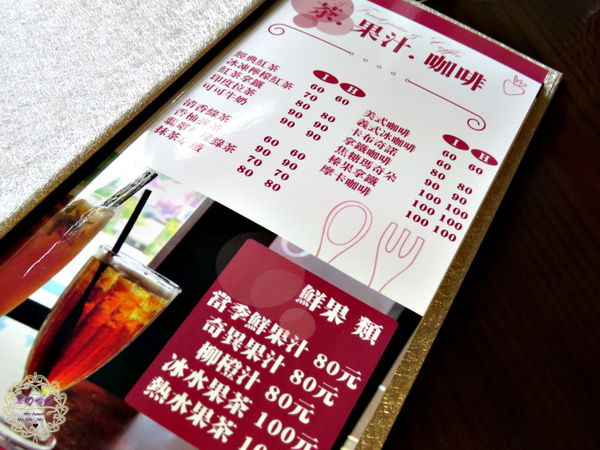 茶.果汁.咖啡
I H
經典紅茶 60 60
冰凍檸檬紅茶 70
紅茶拿鐵 80 80
印度拉茶 90 90
可可牛奶 90 90
清香綠茶 60 60
香柚綠茶 90 90
綠茶 70 70
抹茶 80 80
I H
美式咖啡 60 60
義式冰咖啡 60
卡布奇諾 80 80
拿鐵咖啡 90 90
焦糖瑪奇朵 100 100
榛果拿鐵 100 100
摩卡咖啡 100 100
鮮果 類
當季鮮果汁 80元
奇異果汁 80元
柳橙汁 80元
冰水果茶 100元
熱水果茶 100